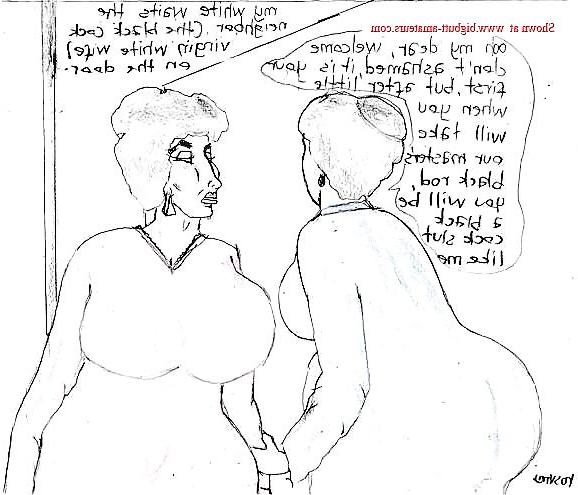 my white waits the
neighbor (the black cock
virgin white wife)
en the door.
Shown at www.bigbutt-amateurs.com
ooh my dear, welcome,
don't ashamed, it is your
first, but after little
when you
will take
our master's
black rod,
you will be
a black
cock slut
like me